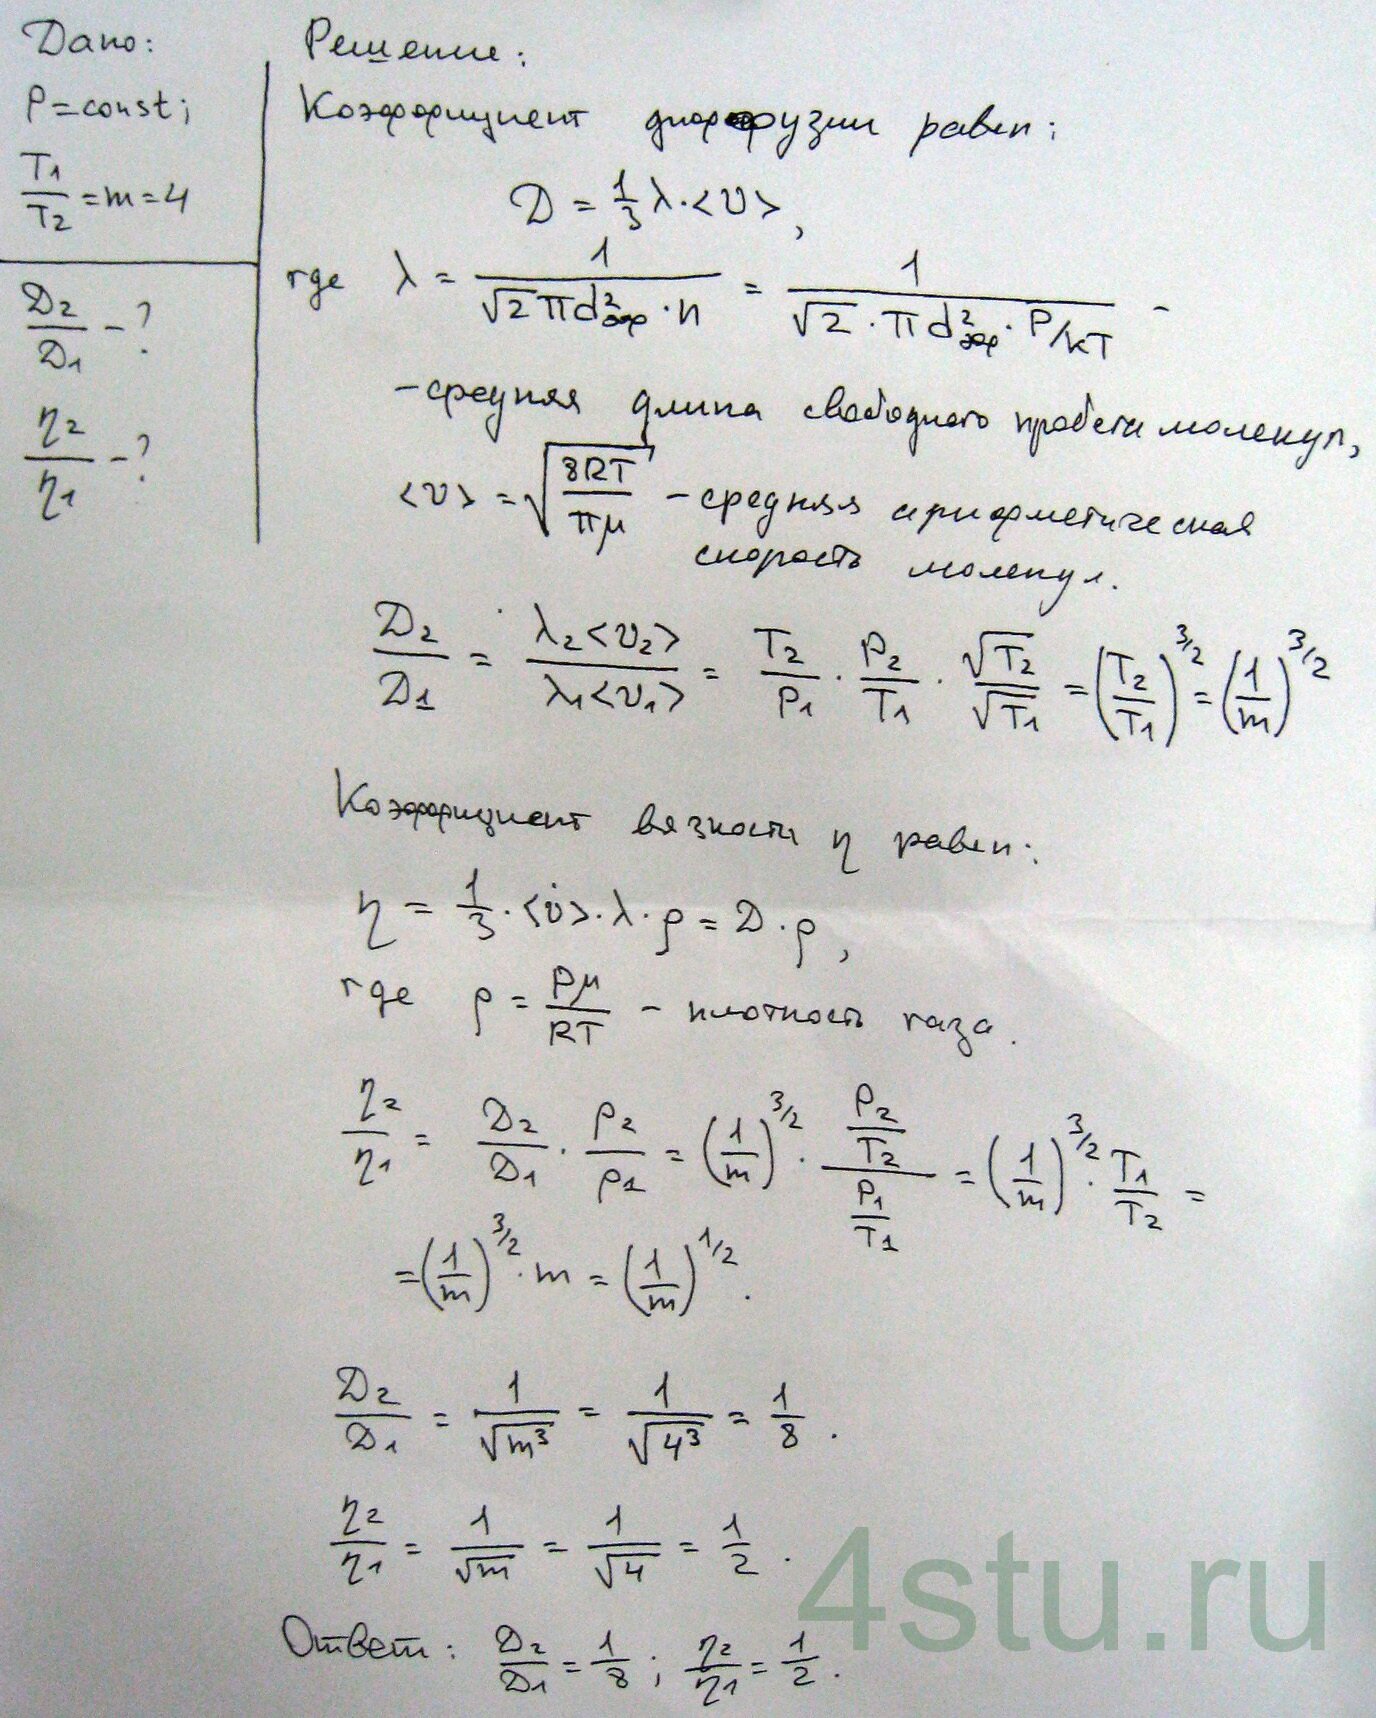 Дано:
P = const;
T₁/T₂ = m = 4
D₂/D₁ – ?
η₂/η₁ – ?
Решение:
Коэффициент диффузии равен:
D = 1/3 λ·<v>,
где λ = 1/(√2 πd²эф·n) = 1/(√2·πd²эф·P/kT) –
– средняя длина свободного пробега молекул,
<v> = √(8RT/πμ) – средняя арифметическая
скорость молекул.
D₂/D₁ = λ₂<v₂>/λ₁<v₁> = T₂/P₁ · P₂/T₁ · √T₂/√T₁ = (T₂/T₁)^3/2 = (1/m)^3/2
Коэффициент вязкости η равен:
η = 1/3·<v>·λ·ρ = D·ρ,
где ρ = Pμ/RT – плотность газа.
η₂/η₁ = D₂/D₁ · ρ₂/ρ₁ = (1/m)^3/2 · (P₂/T₂)/(P₁/T₁) = (1/m)^3/2 · T₁/T₂ =
= (1/m)^3/2 · m = (1/m)^1/2.
D₂/D₁ = 1/√m³ = 1/√4³ = 1/8.
η₂/η₁ = 1/√m = 1/√4 = 1/2.
Ответ: D₂/D₁ = 1/8; η₂/η₁ = 1/2.
4stu.ru